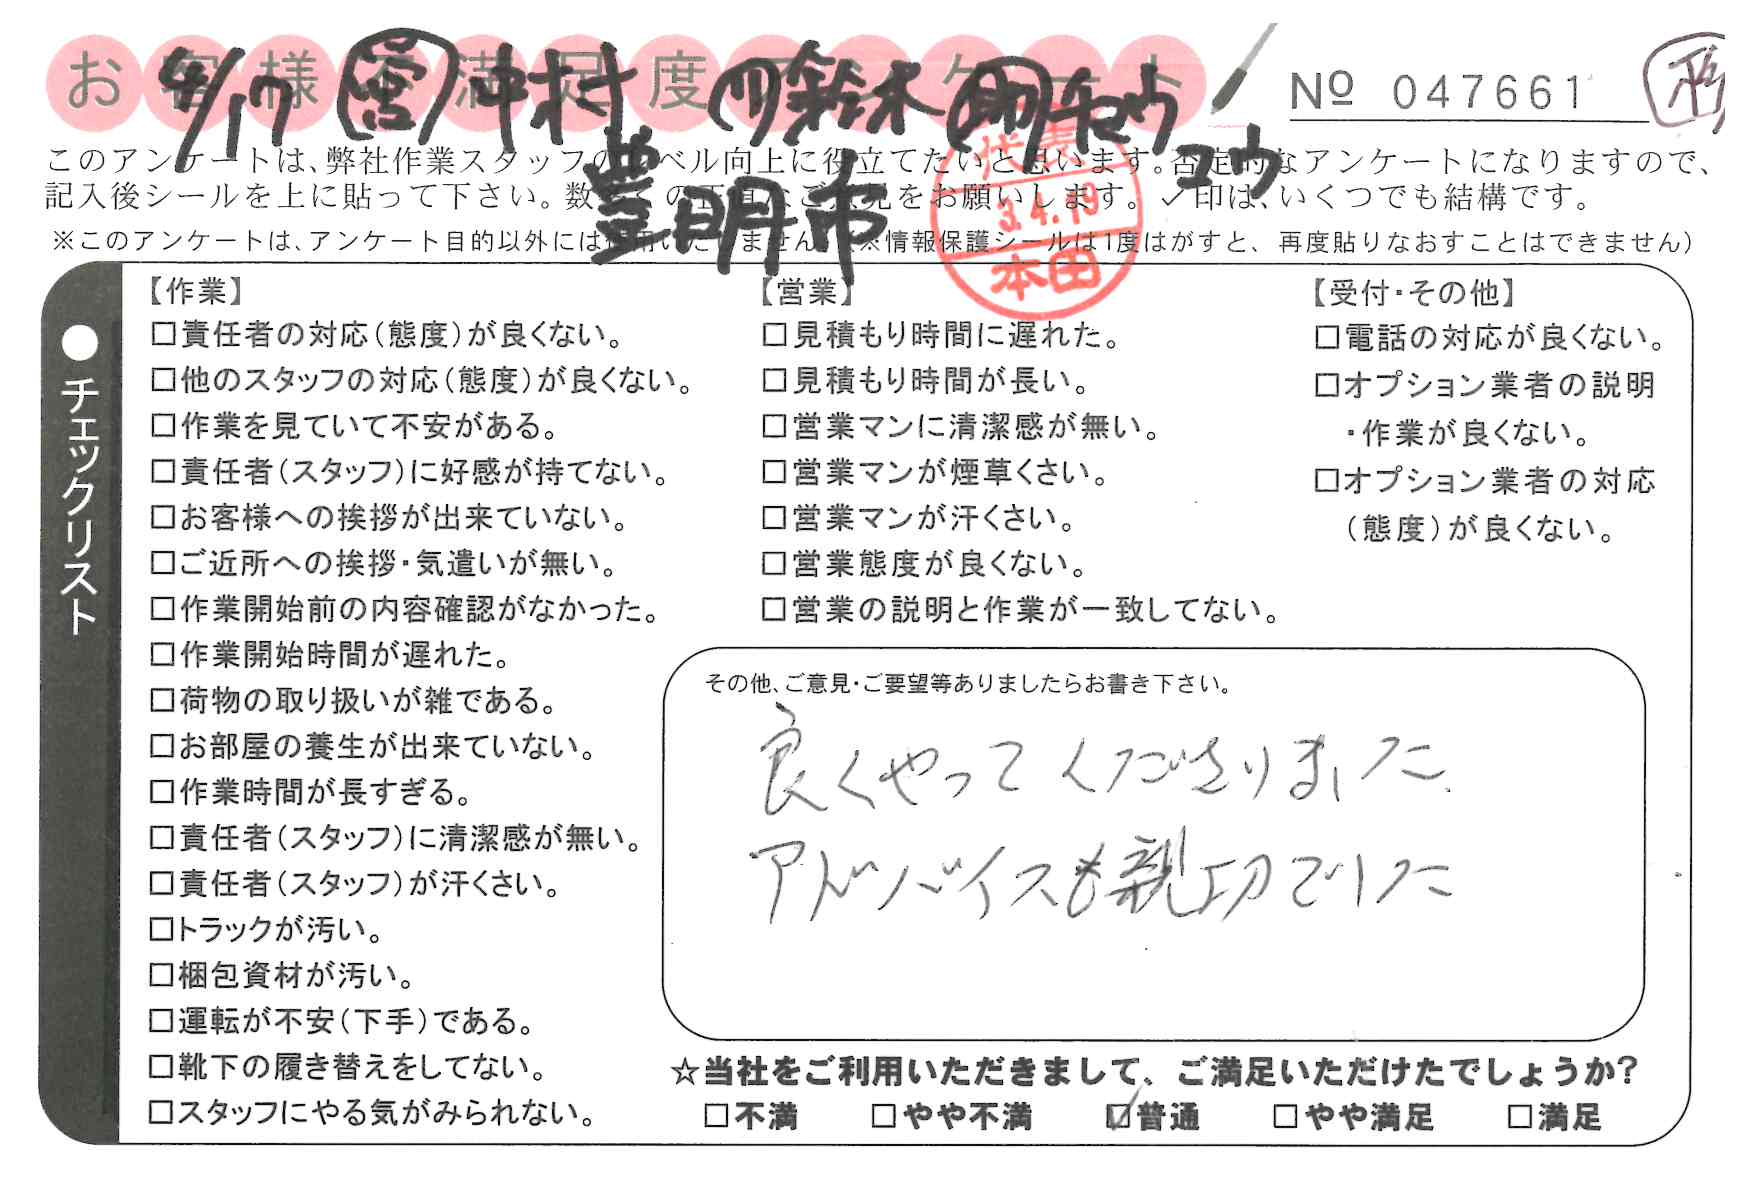 お客様不満足度アンケート
4/17 営 中村 リ 鈴木 チョウ
ユウ
豊明市
№ 047661
代表
3.4.19
本田
このアンケートは、弊社作業スタッフのレベル向上に役立てたいと思います。否定的なアンケートになりますので、
記入後シールを上に貼って下さい。数多くの正直なご意見をお願いします。✓印は、いくつでも結構です。
※このアンケートは、アンケート目的以外には使用いたしません。(※情報保護シールは1度はがすと、再度貼りなおすことはできません)
●チェックリスト
【作業】
□責任者の対応(態度)が良くない。
□他のスタッフの対応(態度)が良くない。
□作業を見ていて不安がある。
□責任者(スタッフ)に好感が持てない。
□お客様への挨拶が出来ていない。
□ご近所への挨拶・気遣いが無い。
□作業開始前の内容確認がなかった。
□作業開始時間が遅れた。
□荷物の取り扱いが雑である。
□お部屋の養生が出来ていない。
□作業時間が長すぎる。
□責任者(スタッフ)に清潔感が無い。
□責任者(スタッフ)が汗くさい。
□トラックが汚い。
□梱包資材が汚い。
□運転が不安(下手)である。
□靴下の履き替えをしてない。
□スタッフにやる気がみられない。
【営業】
□見積もり時間に遅れた。
□見積もり時間が長い。
□営業マンに清潔感が無い。
□営業マンが煙草くさい。
□営業マンが汗くさい。
□営業態度が良くない。
□営業の説明と作業が一致してない。
【受付・その他】
□電話の対応が良くない。
□オプション業者の説明
・作業が良くない。
□オプション業者の対応
(態度)が良くない。
その他、ご意見・ご要望等ありましたらお書き下さい。
良くやってくださりました.
アドバイスも親切でした
☆当社をご利用いただきまして、ご満足いただけたでしょうか?
□不満 □やや不満 ☑普通 □やや満足 □満足